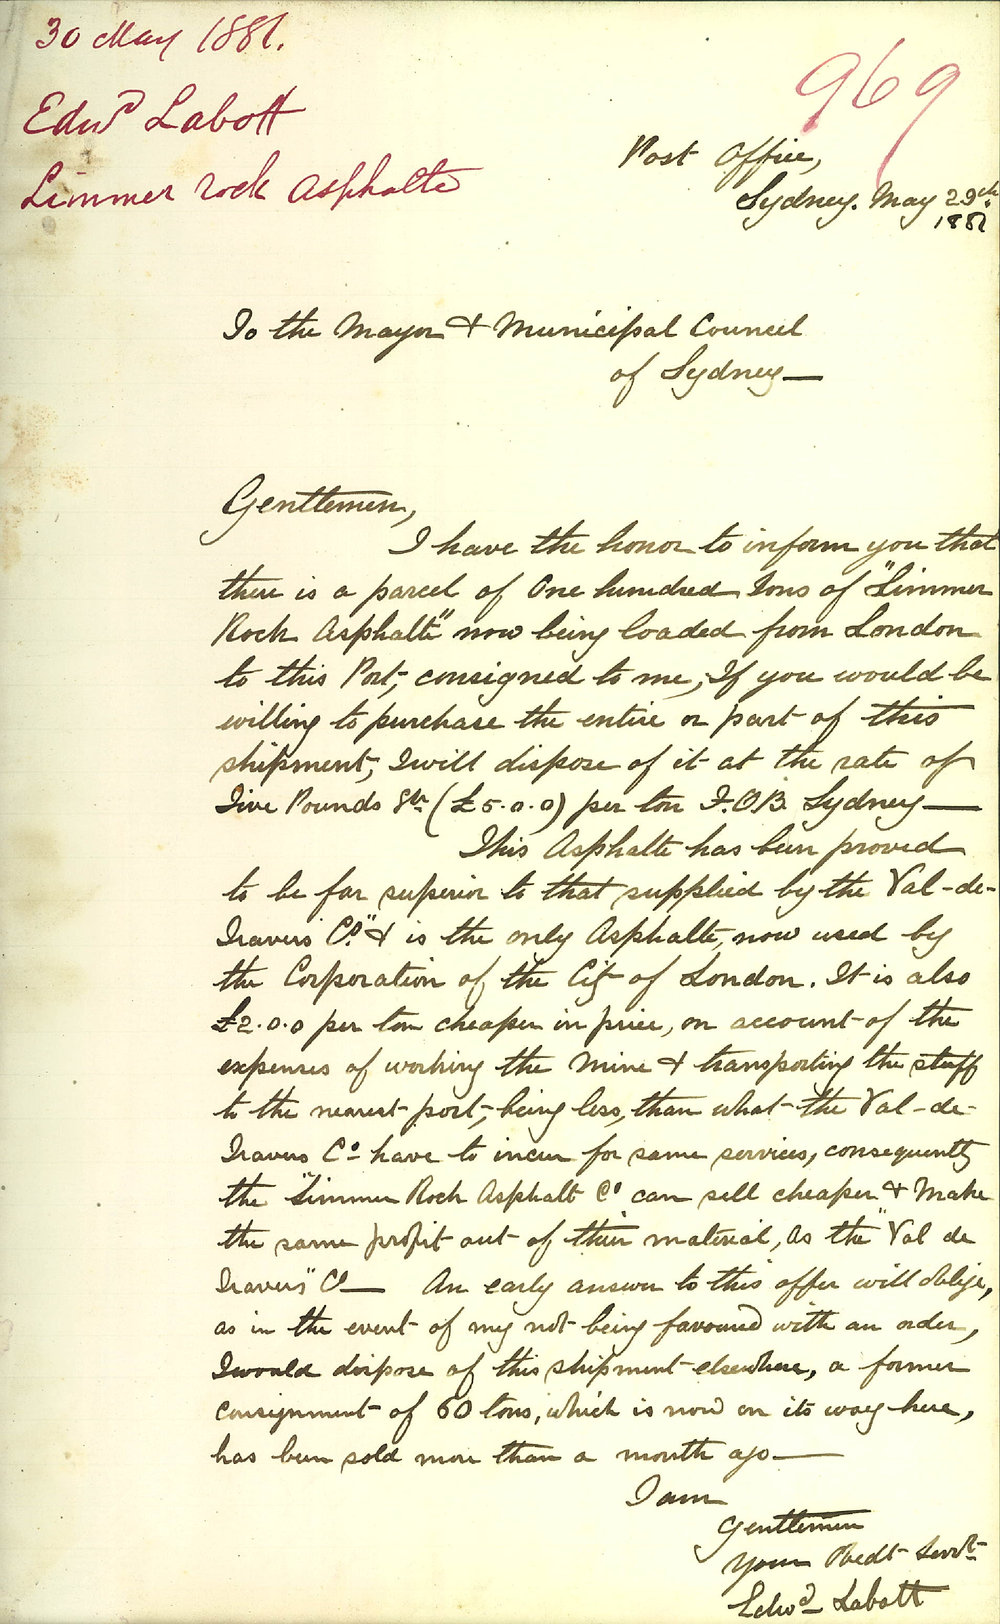 30 May 1881.
Edwd Labatt
Limmer rock Asphalte
969
Post Office,
Sydney. May 29th
1881
To the Mayor & Municipal Council
of Sydney —
Gentlemen,
I have the honor to inform you that
there is a parcel of One hundred Tons of "Limmer
Rock Asphalte" now being loaded from London
to this Port, consigned to me, If you would be
willing to purchase the entire or part of this
shipment, I will dispose of it at the rate of
Five Pounds Str (£5.0.0) per ton F.O.B. Sydney —
This Asphalte has been proved
to be far superior to that supplied by the Val-de-
Travers Co." & is the only Asphalte, now used by
the Corporation of the City of London. It is also
£2.0.0 per ton cheaper in price, on account of the
expenses of working the Mine & transporting the stuff
to the nearest port, being less, than what the Val-de-
Travers Co have to incur for same services, consequently
the "Limmer Rock Asphalt Co can sell cheaper & Make
the same profit out of their material, as the "Val de
Travers" Co — An early answer to this offer will oblige,
as in the event of my not being favoured with an order,
I would dispose of this shipment elsewhere, a former
consignment of 60 tons, which is now on its way here,
has been sold more than a month ago —
I am
Gentlemen
Your Obedt Servt
Edwd Labatt